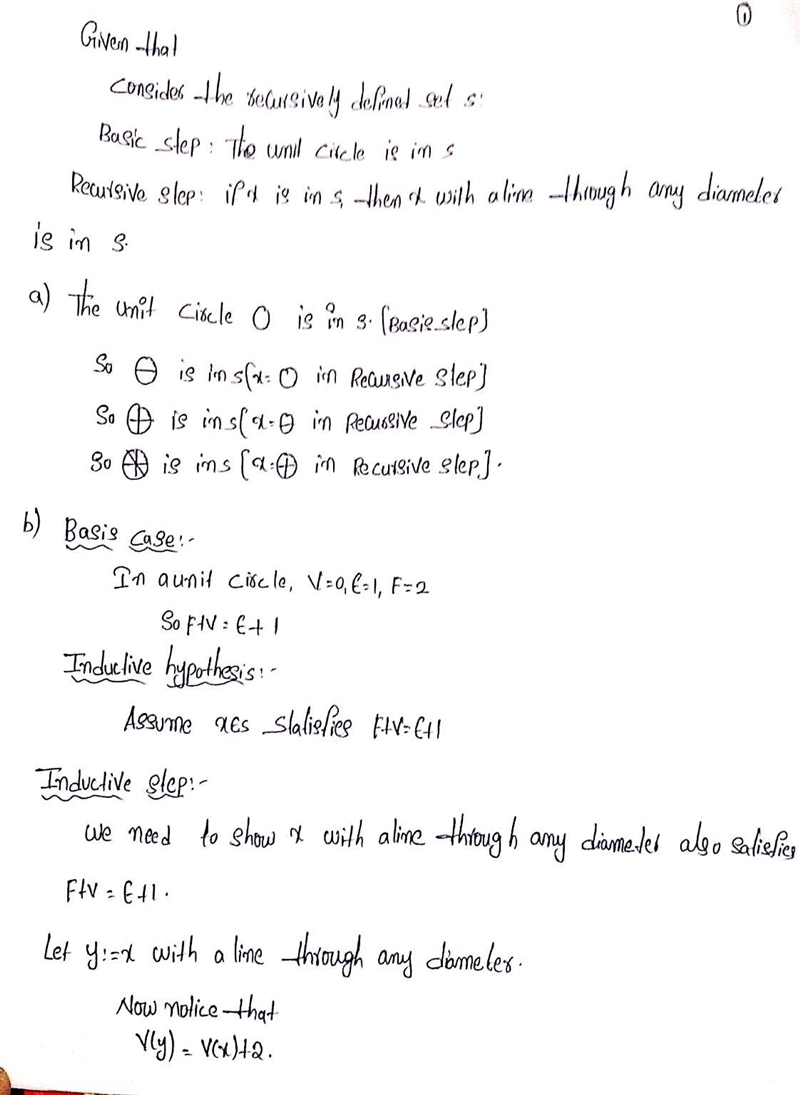 ①
Given that
Consider the recursively defined set s:
Basic step: The unit circle is in s
Recursive step: if x is in s, then x with a line through any diameter
is in s.
a) The unit circle ○ is in s. [Basic step]
So ⊖ is in s [x = ○ in Recursive step]
So ⊕ is in s [x = ⊖ in Recursive step]
So is in s [x = ⊕ in Recursive step].
b) Basis case:-
In a unit circle, V=0, E=1, F=2
So F+V = E+1
Inductive hypothesis:-
Assume x∈s statisfies F+V=E+1
Inductive step:-
we need to show x with a line through any diameter also satisfies
F+V = E+1.
Let y:=x with a line through any diameter.
Now notice that
V(y) = V(x)+2.